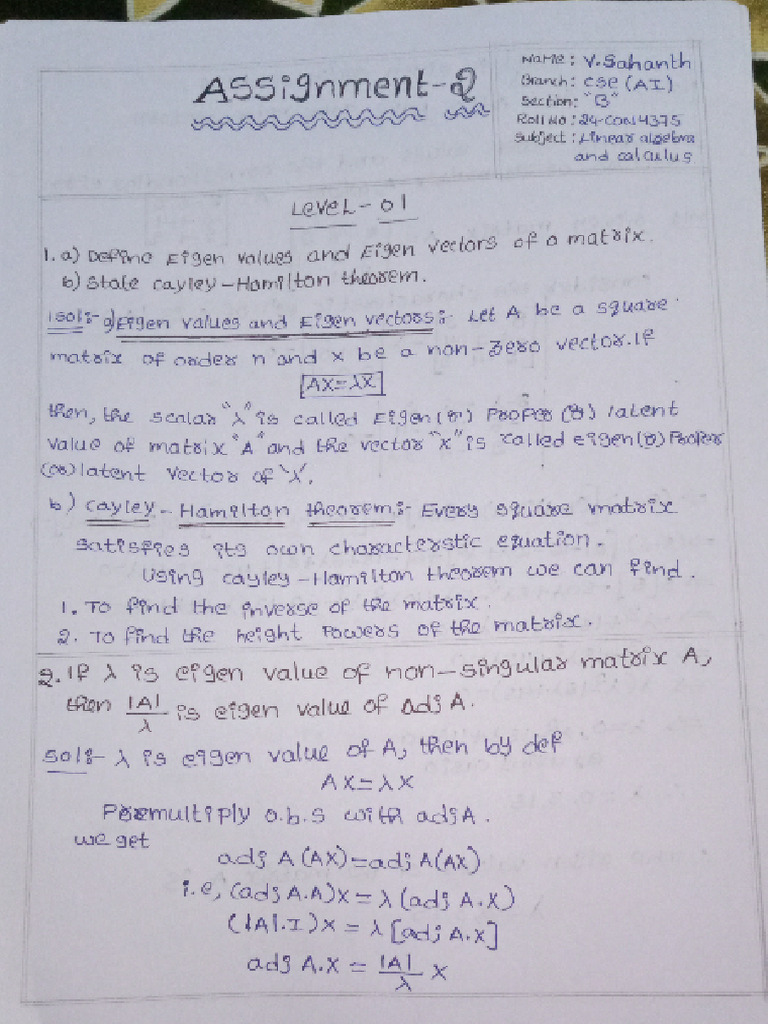 Assignment-2
Name: V.Sahanth
Branch: CSE (AI)
Section: "B"
Roll No: 24-CON4375
Subject: Linear algebra
and calculus
Level-01
1. a) Define Eigen values and Eigen vectors of a matrix.
b) State cayley-Hamilton theorem.
1sol:- a) Eigen values and Eigen vectors:- Let A be a square
matrix of order n and x be a non-zero vector. If
AX=λX
then, the scalar "λ" is called Eigen (or) Proper (or) latent
value of matrix "A" and the vector "X" is called eigen (or) Proper
(or) latent vector of 'λ'.
b) Cayley-Hamilton theorem:- Every square matrix
satisfies its own characterstic equation.
Using cayley-Hamilton theorem we can find.
1. To find the inverse of the matrix.
2. To find the height Powers of the matrix.
2. If λ is eigen value of non-singular matrix A,
then |A|/λ is eigen value of adj A.
Sol:- λ is eigen value of A, then by def
AX=λX
Poremultiply o.b.s with adj A.
we get
adj A (AX)=adj A(λX)
i.e, (adj A.A)X=λ(adj A.X)
(|A|.I)X=λ[adj A.X]
adj A.X=|A|/λ X